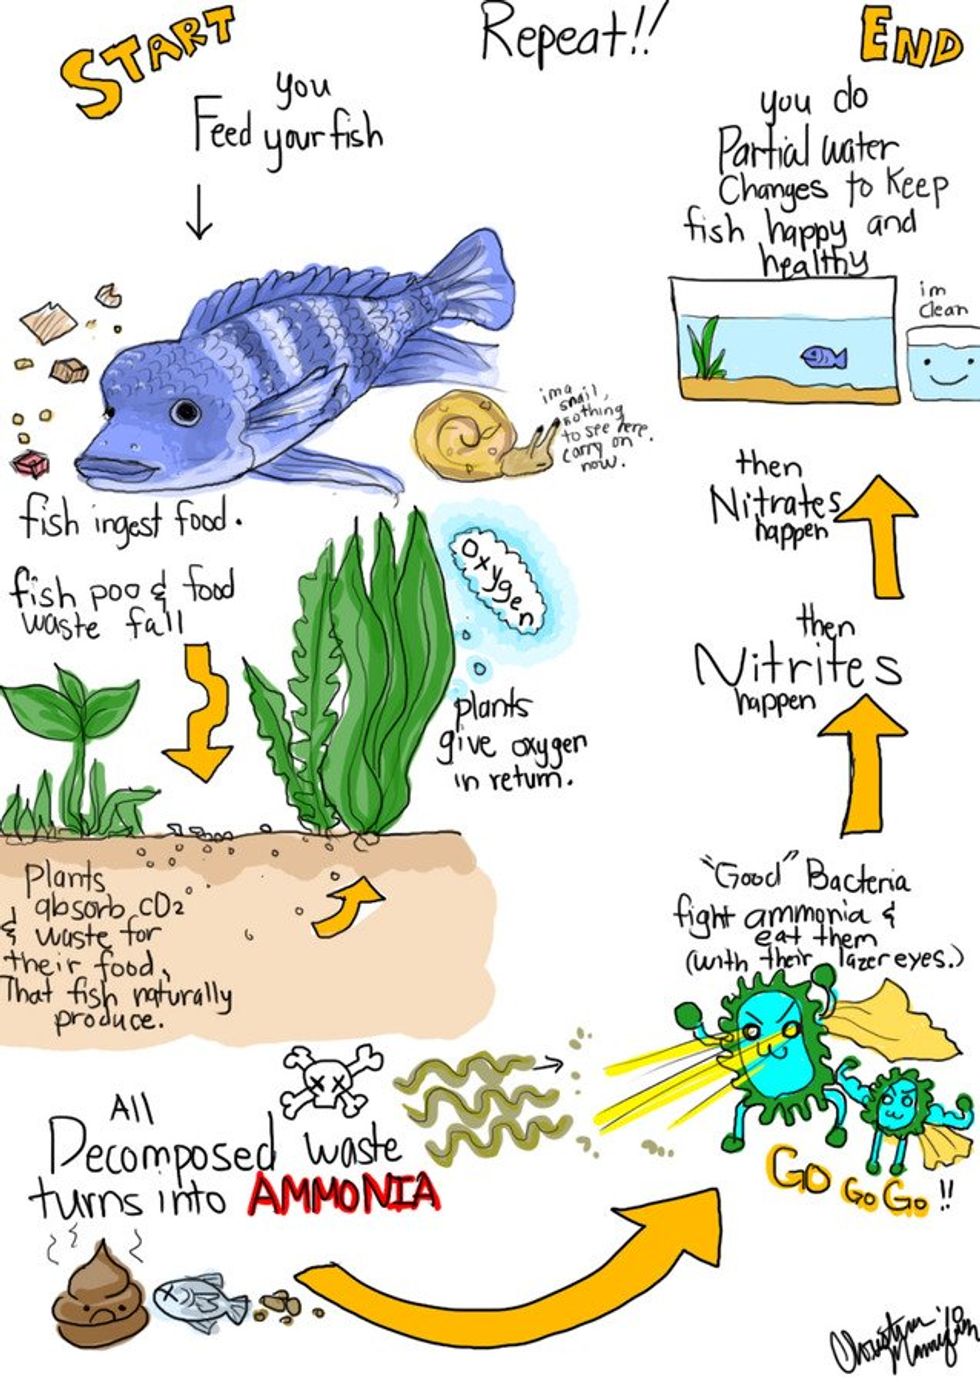 START
you
Feed your fish
Repeat!!
END
you do
Partial water
Changes to keep
fish happy and
healthy
im
clean
im a
snail,
nothing
to see here.
carry on
now.
fish ingest food.
fish poo & food
waste fall
oxygen
plants
give oxygen
in return.
Plants
absorb CO2
& waste for
their food,
That fish naturally
produce.
All
Decomposed waste
turns into AMMONIA
"Good" Bacteria
fight ammonia &
eat them
(with their lazer eyes.)
GO GO GO !!
then
Nitrites
happen
then
Nitrates
happen